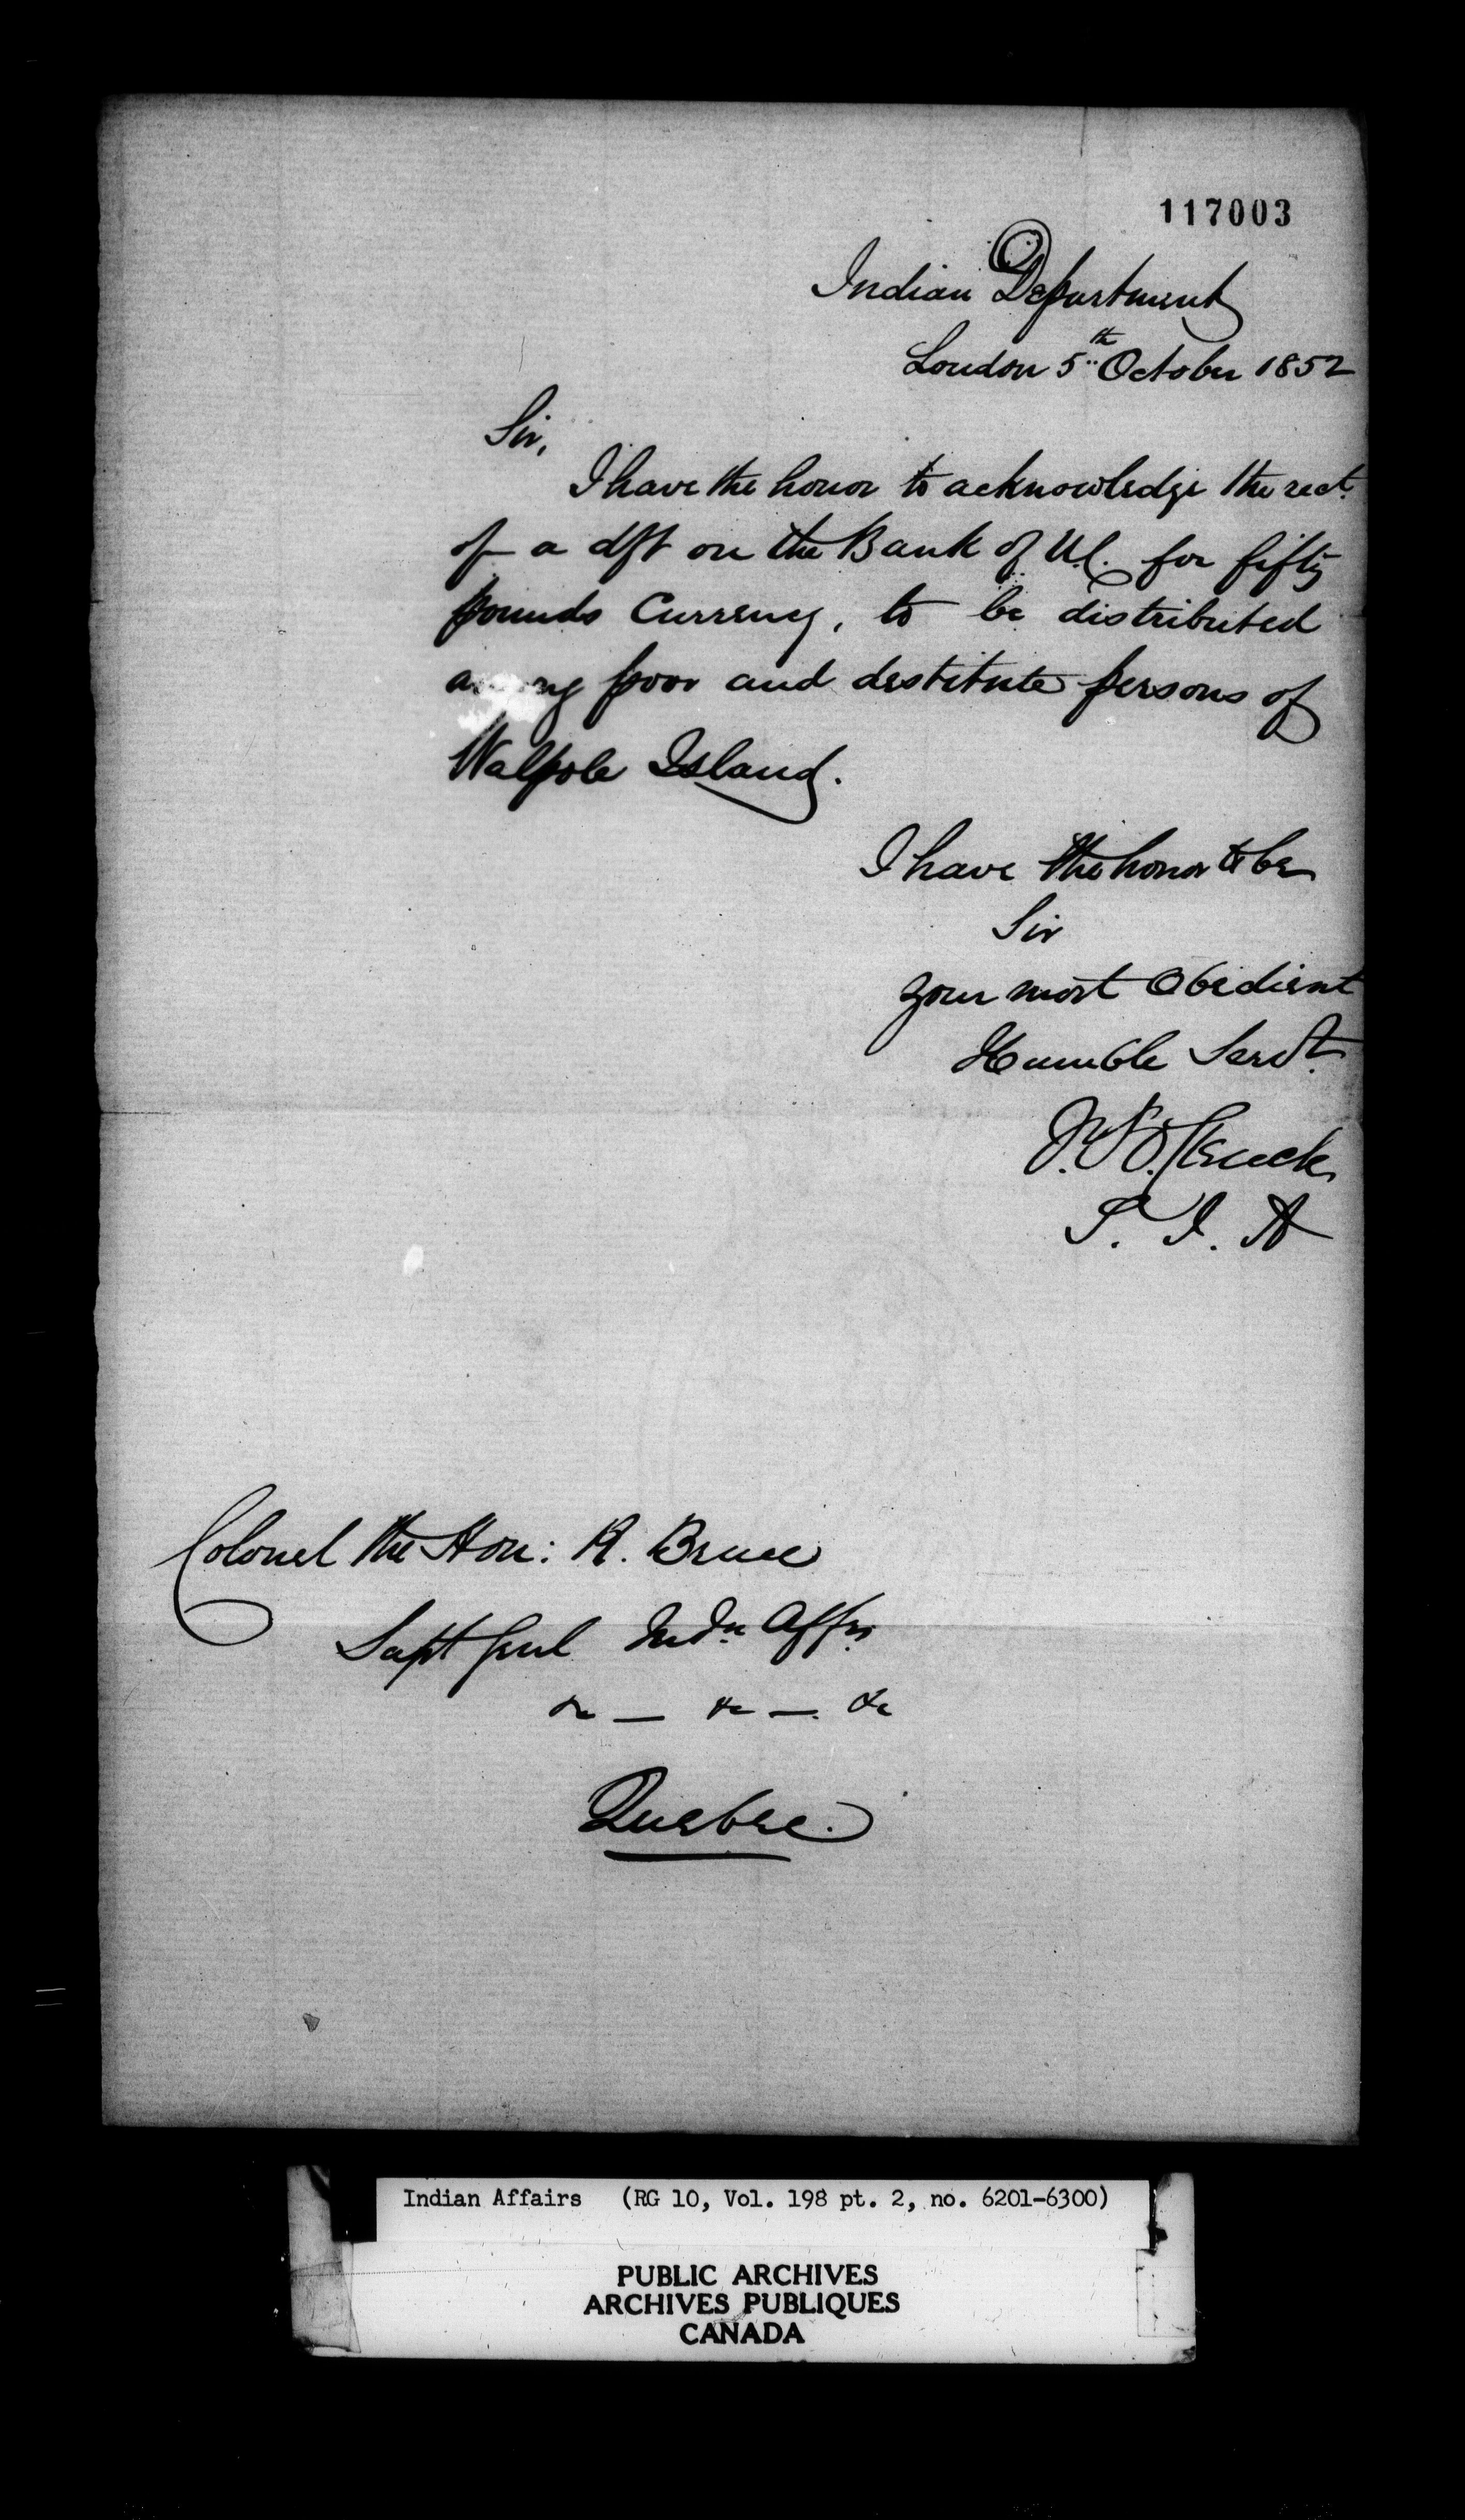 117003
Indian Department
London 5th October 1852
Sir,
I have the honor to acknowledge the rect.
of a dft on the Bank of U.C. for fifty
pounds Currency, to be distributed
among poor and destitute persons of
Walpole Island.
I have the honor to be
Sir
your most Obedient
Humble Servt.
S. I. A
Colonel the Hon: R. Bruce
Supt Genl Indn Affrs
&c — &c — &c
Quebec.
Indian Affairs (RG 10, Vol. 198 pt. 2, no. 6201-6300)
PUBLIC ARCHIVES
ARCHIVES PUBLIQUES
CANADA